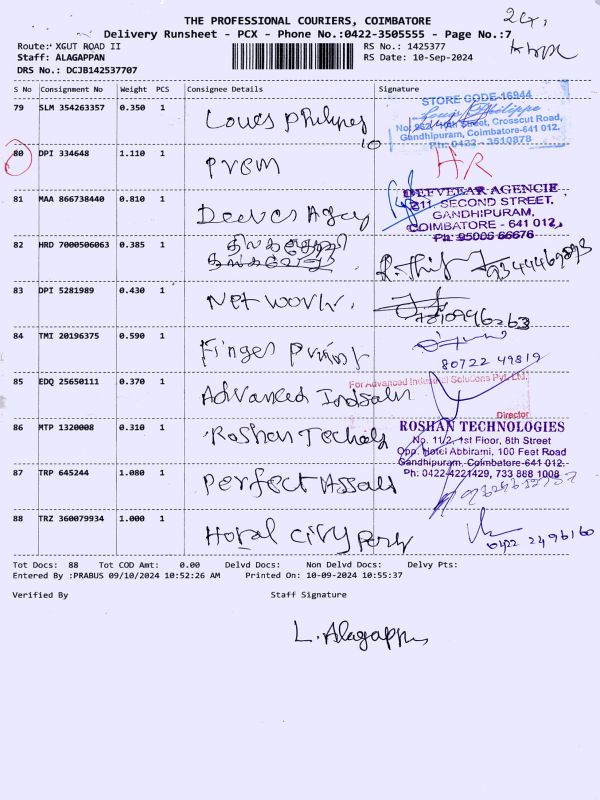 THE PROFESSIONAL COURIERS, COIMBATORE
Delivery Runsheet - PCX - Phone No.:0422-3505555 - Page No.:7
Route: XGUT ROAD II
Staff: ALAGAPPAN
DRS No.: DCJB142537707
RS No.: 1425377
RS Date: 10-Sep-2024
S No Consignment No Weight PCS Consignee Details Signature
79 SLM 354263357 0.350 1 Loues Philipes
STORE CODE-16944
Louis Philippe
Crosscut Road,
Gandhipuram, Coimbatore-641 012.
Ph: 0422 - 3510878
80 DPI 334648 1.110 1 Prem
HR
81 MAA 866738440 0.810 1 Deeves Agey
DEEVEEAR AGENCIE
211, SECOND STREET,
GANDHIPURAM,
COIMBATORE - 641 012
Ph: 95006 66676
82 HRD 7000506063 0.385 1
83 DPI 5281989 0.430 1 Net work.
84 TMI 20196375 0.590 1 Finger Print
80722 49819
85 EDQ 25650111 0.370 1 Advanced Indsaln
For Advanced Industrial Solutions Pvt. Ltd.
Director
86 MTP 1320008 0.310 1 Roshan Techals
ROSHAN TECHNOLOGIES
No. 11/2, 1st Floor, 8th Street
Opp. Hotel Abbirami, 100 Feet Road
Gandhipuram, Coimbatore-641 012.
Ph: 0422-4221429, 733 888 1008
87 TRP 645244 1.080 1 Perfect Assals
88 TRZ 360079934 1.000 1 Hotal City Perk
0422 2496160
Tot Docs: 88 Tot COD Amt: 0.00 Delvd Docs: Non Delvd Docs: Delvy Pts:
Entered By :PRABUS 09/10/2024 10:52:26 AM Printed On: 10-09-2024 10:55:37
Verified By Staff Signature
L. Alagappan